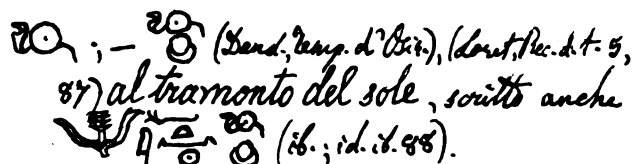 ; — (Dend., Temp. d'Osir.), (Loret, Rec. d. t. 5,
87) al tramonto del sole, scritto anche
(ib.; id. ib. 88).